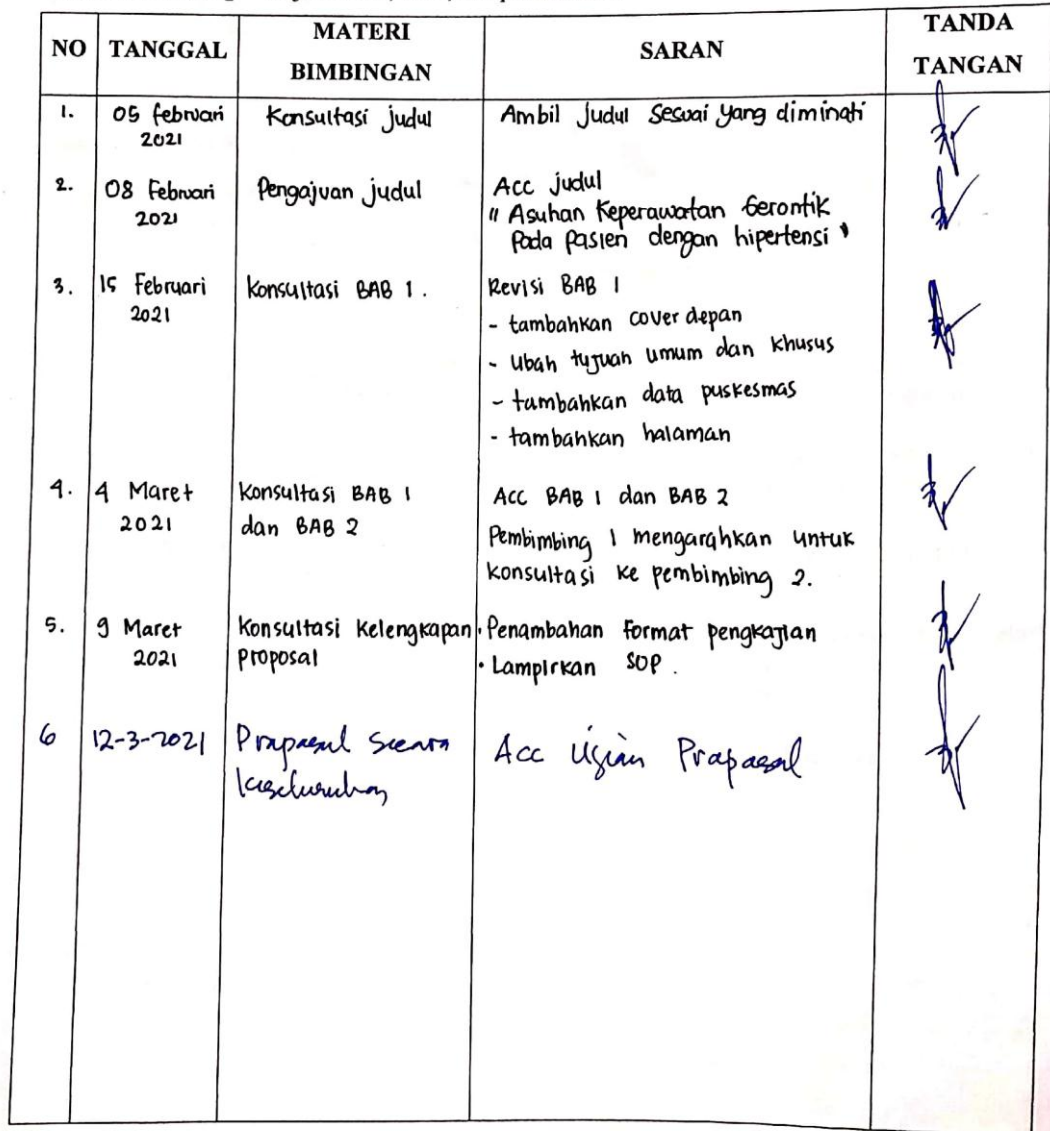 NO TANGGAL MATERI BIMBINGAN SARAN TANDA TANGAN
1. 05 februari 2021 Konsultasi judul Ambil judul sesuai yang diminati
2. 08 Februari 2021 Pengajuan judul Acc judul
" Asuhan Keperawatan Gerontik
Pada pasien dengan hipertensi "
3. 15 Februari 2021 Konsultasi BAB 1. Revisi BAB 1
- tambahkan cover depan
- Ubah tujuan umum dan khusus
- tambahkan data puskesmas
- tambahkan halaman
4. 4 Maret 2021 Konsultasi BAB 1 dan BAB 2 Acc BAB 1 dan BAB 2
Pembimbing 1 mengarahkan untuk
konsultasi ke pembimbing 2.
5. 9 Maret 2021 Konsultasi Kelengkapan proposal • Penambahan format pengkajian
• Lampirkan SOP.
6 12-3-2021 Proposal secara keseluruhan Acc Ujian Proposal